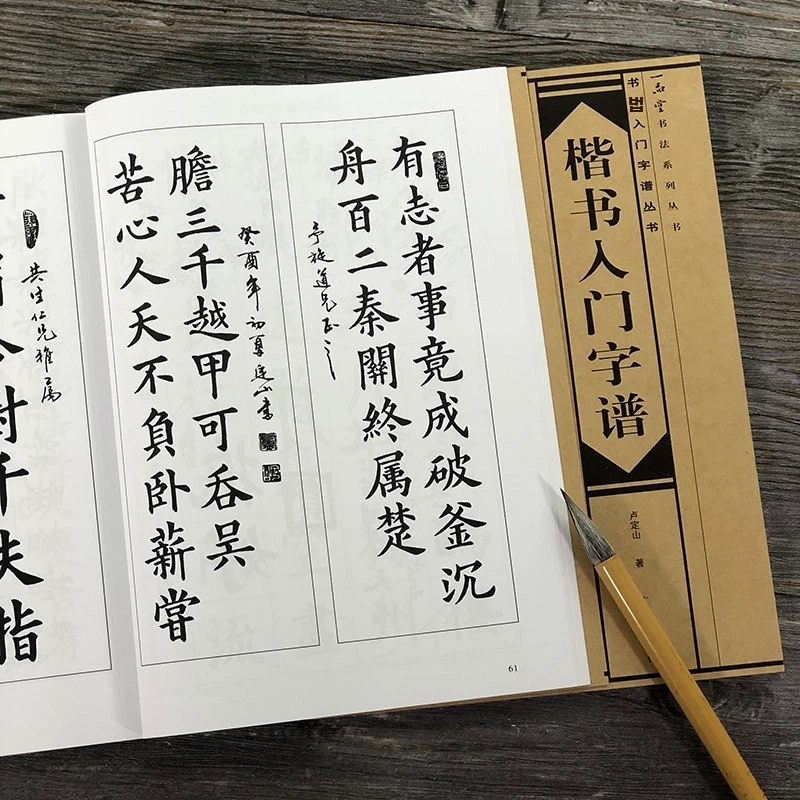 一品堂书法系列丛书
书法入门字谱丛书
楷书入门字谱
卢定山 著
有志者事竟成破釜沉
舟百二秦關終属楚
旋道兄正之
苦心人天不負卧薪嘗
膽三千越甲可吞吳
癸酉年初夏定山書
61
共生仁兄雅屬
千夫指